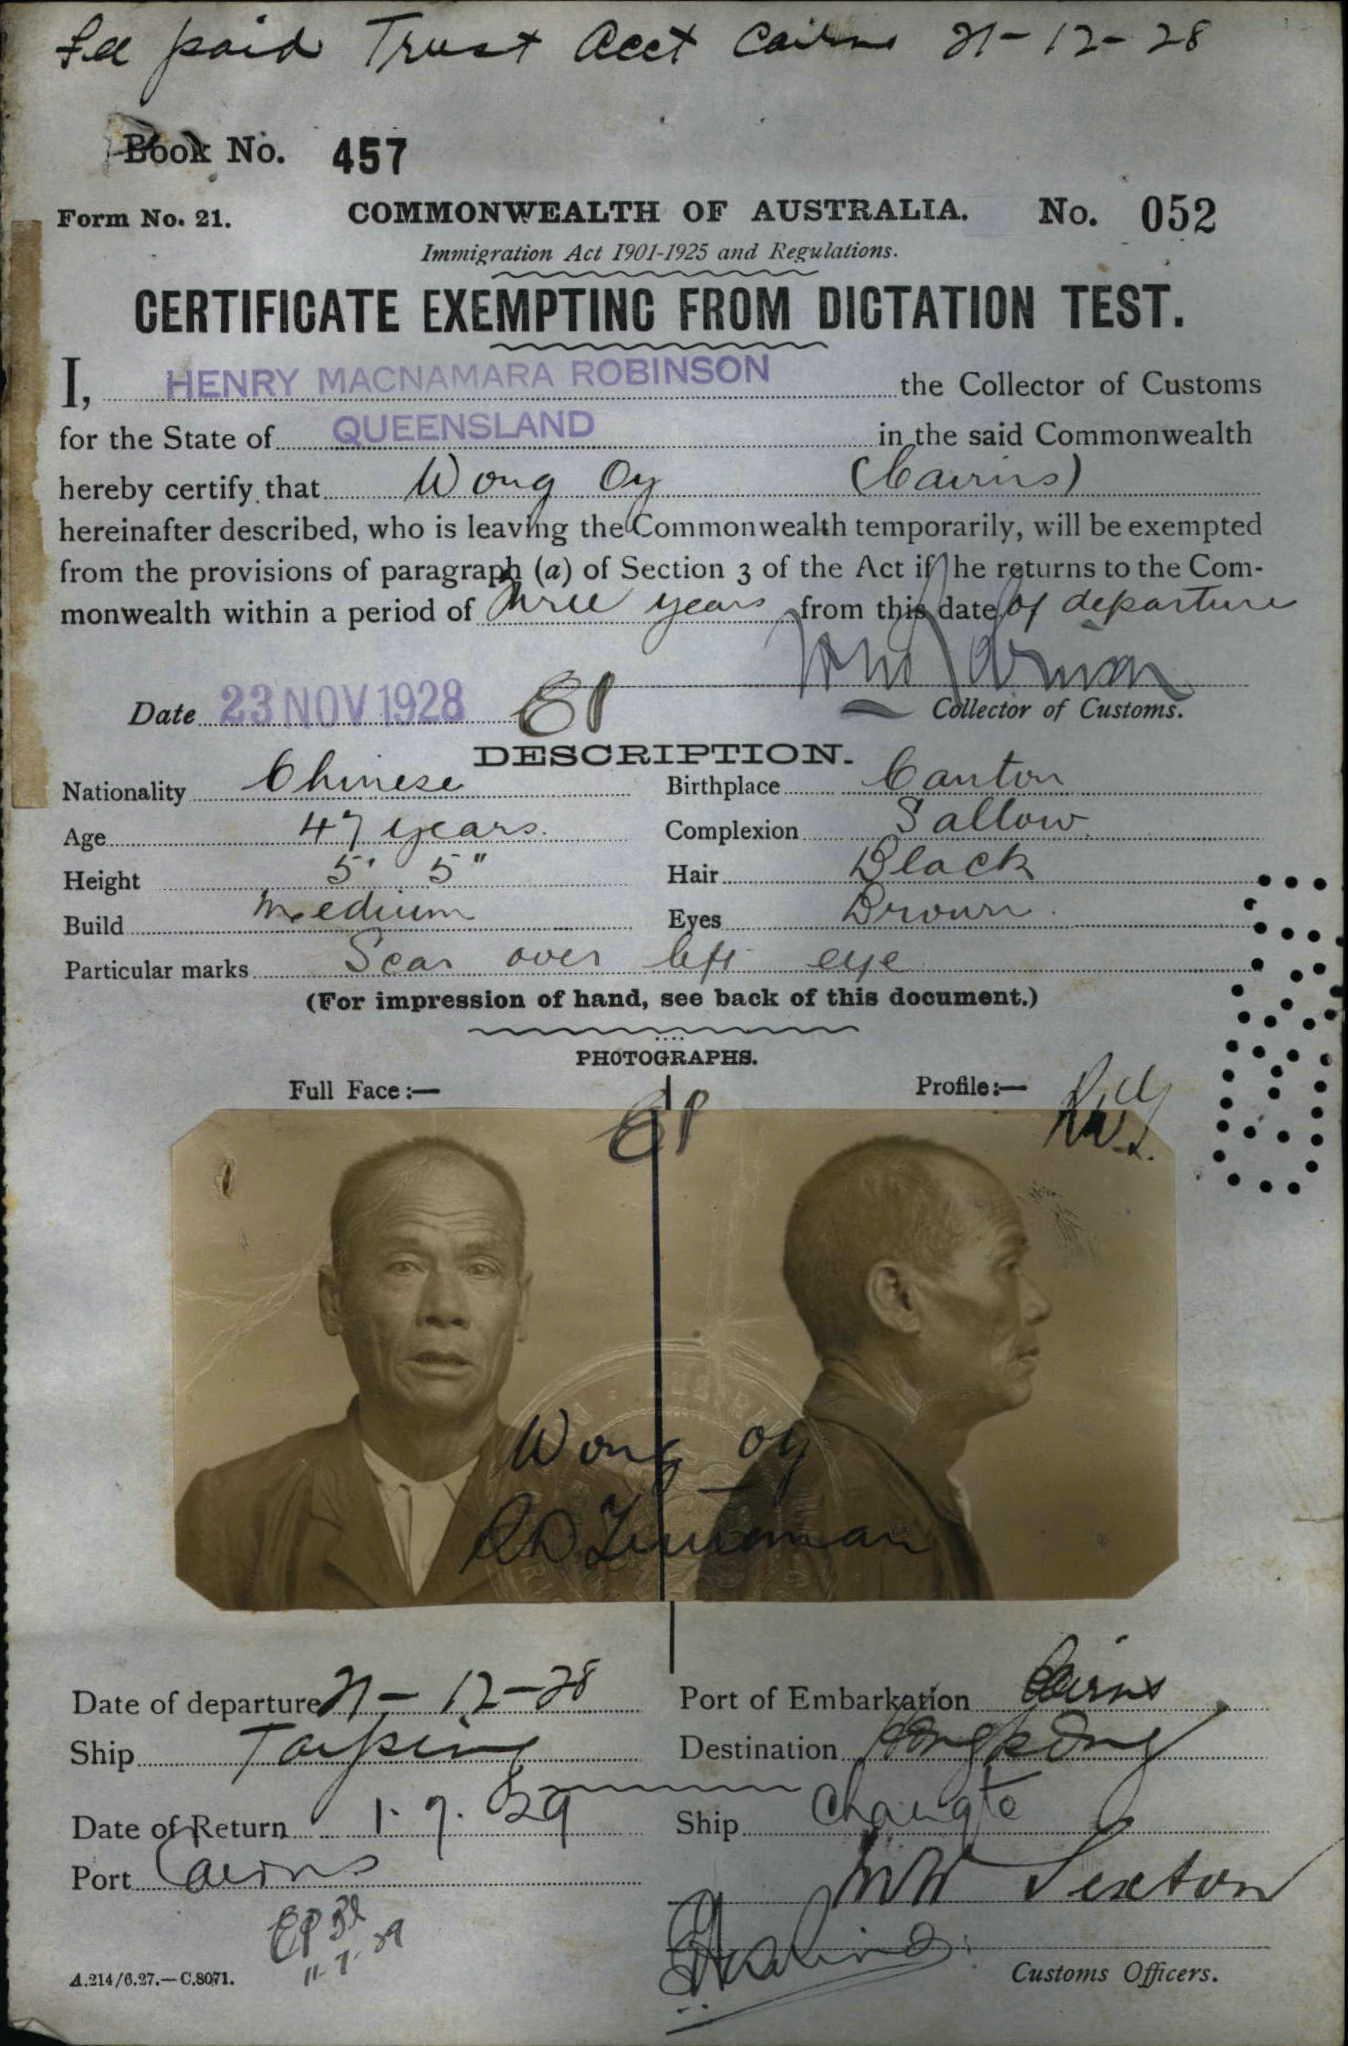 Fee paid Trust Acct Cairns 21-12-28
Book No. 457
Form No. 21. COMMONWEALTH OF AUSTRALIA. No. 052
Immigration Act 1901-1925 and Regulations.
CERTIFICATE EXEMPTING FROM DICTATION TEST.
I, HENRY MACNAMARA ROBINSON the Collector of Customs
for the State of QUEENSLAND in the said Commonwealth
hereby certify that Wong Oy (Cairns)
hereinafter described, who is leaving the Commonwealth temporarily, will be exempted
from the provisions of paragraph (a) of Section 3 of the Act if he returns to the Com-
monwealth within a period of three years from this date of departure
Date 23 NOV 1928 EP Collector of Customs.
DESCRIPTION.
Nationality Chinese Birthplace Canton
Age 47 years. Complexion Sallow
Height 5' 5" Hair Black
Build Medium Eyes Brown.
Particular marks Scar over left eye
(For impression of hand, see back of this document.)
PHOTOGRAPHS.
Full Face:— Profile:—
EP
Wong Oy
Date of departure 21-12-28 Port of Embarkation Cairns
Ship Taiping Destination Hongkong
Date of Return 1.7.29 Ship Changte
Port Cairns
Sexton
11-7-29
A.214/6.27.—C.8071. Customs Officers.